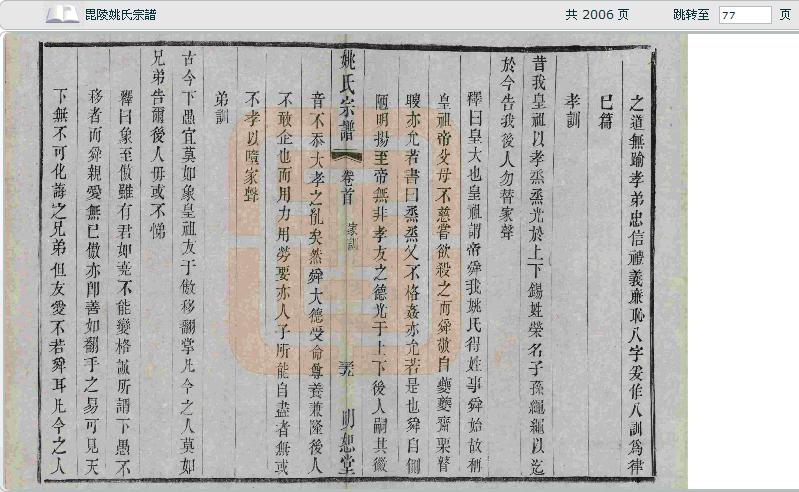 毘陵姚氏宗譜
共 2006 页
跳转至 77 页
之道無踰孝弟忠信禮義廉恥八字爰作八訓為律
巳篇
孝訓
昔我皇祖以孝烝烝光於上下錫姓榮名子孫繩繩以迄
於今告我後人勿替家聲
釋曰皇大也皇祖謂帝舜我姚氏得姓事舜始故稱
皇祖帝父母不慈嘗欲殺之而舜敬自夔夔齋栗瞽
瞍亦允若書曰烝烝乂不格姦亦允若是也舜自側
陋明揚至帝無非孝友之德光于上下後人嗣其徽
姚氏宗譜
卷首
家訓
明恕堂
音不忝大孝之胤矣然舜大德受命尊養兼隆後人
不敢企也而用力用勞要亦人子所能自盡者無或
不孝以隳家聲
弟訓
古今下愚宜莫如象皇祖友于傲移翻掌凡今之人莫如
兄弟告爾後人毋或不悌
釋曰象至傲雖有君如堯不能變格誠所謂下愚不
移者而舜親愛無已傲亦卽善如翻手之易可見天
下無不可化誨之兄弟但友愛不若舜耳凡今之人